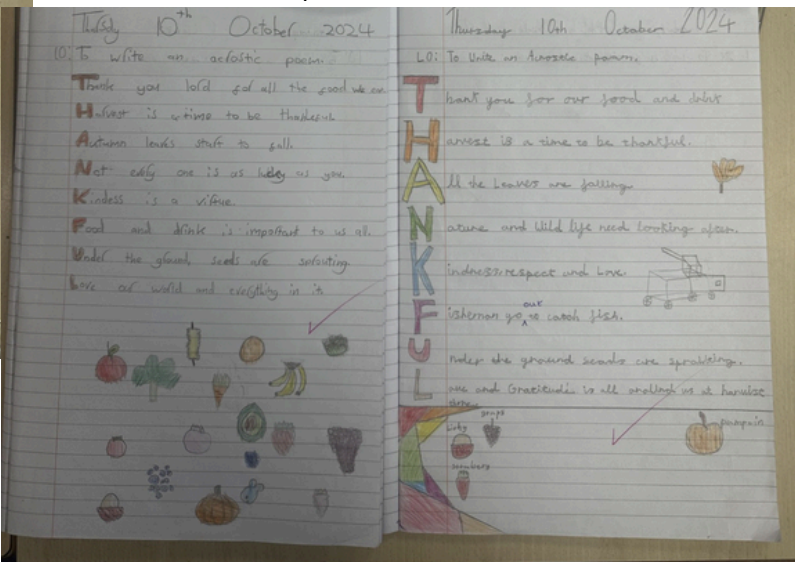 Thursday 10th October 2024
LO: To write an acrostic poem.
Thank you lord for all the food we eat
Harvest is a time to be thankful
Autumn leaves start to fall.
Not every one is as lucky as you.
Kindess is a virtue.
Food and drink is important to us all.
Under the ground, seeds are sprouting
Love our world and everything in it
Thursday 10th October 2024
LO: To Write an Acrostic poem.
Thank you for our food and drink
Harvest is a time to be thankful.
All the Leaves are falling.
Nature and Wild life need looking after.
Kindness respect and Love.
Fisherman go out to catch fish.
Under the ground seeds are sprouting.
Love and Gratitude is all around us at
grape
pumpain